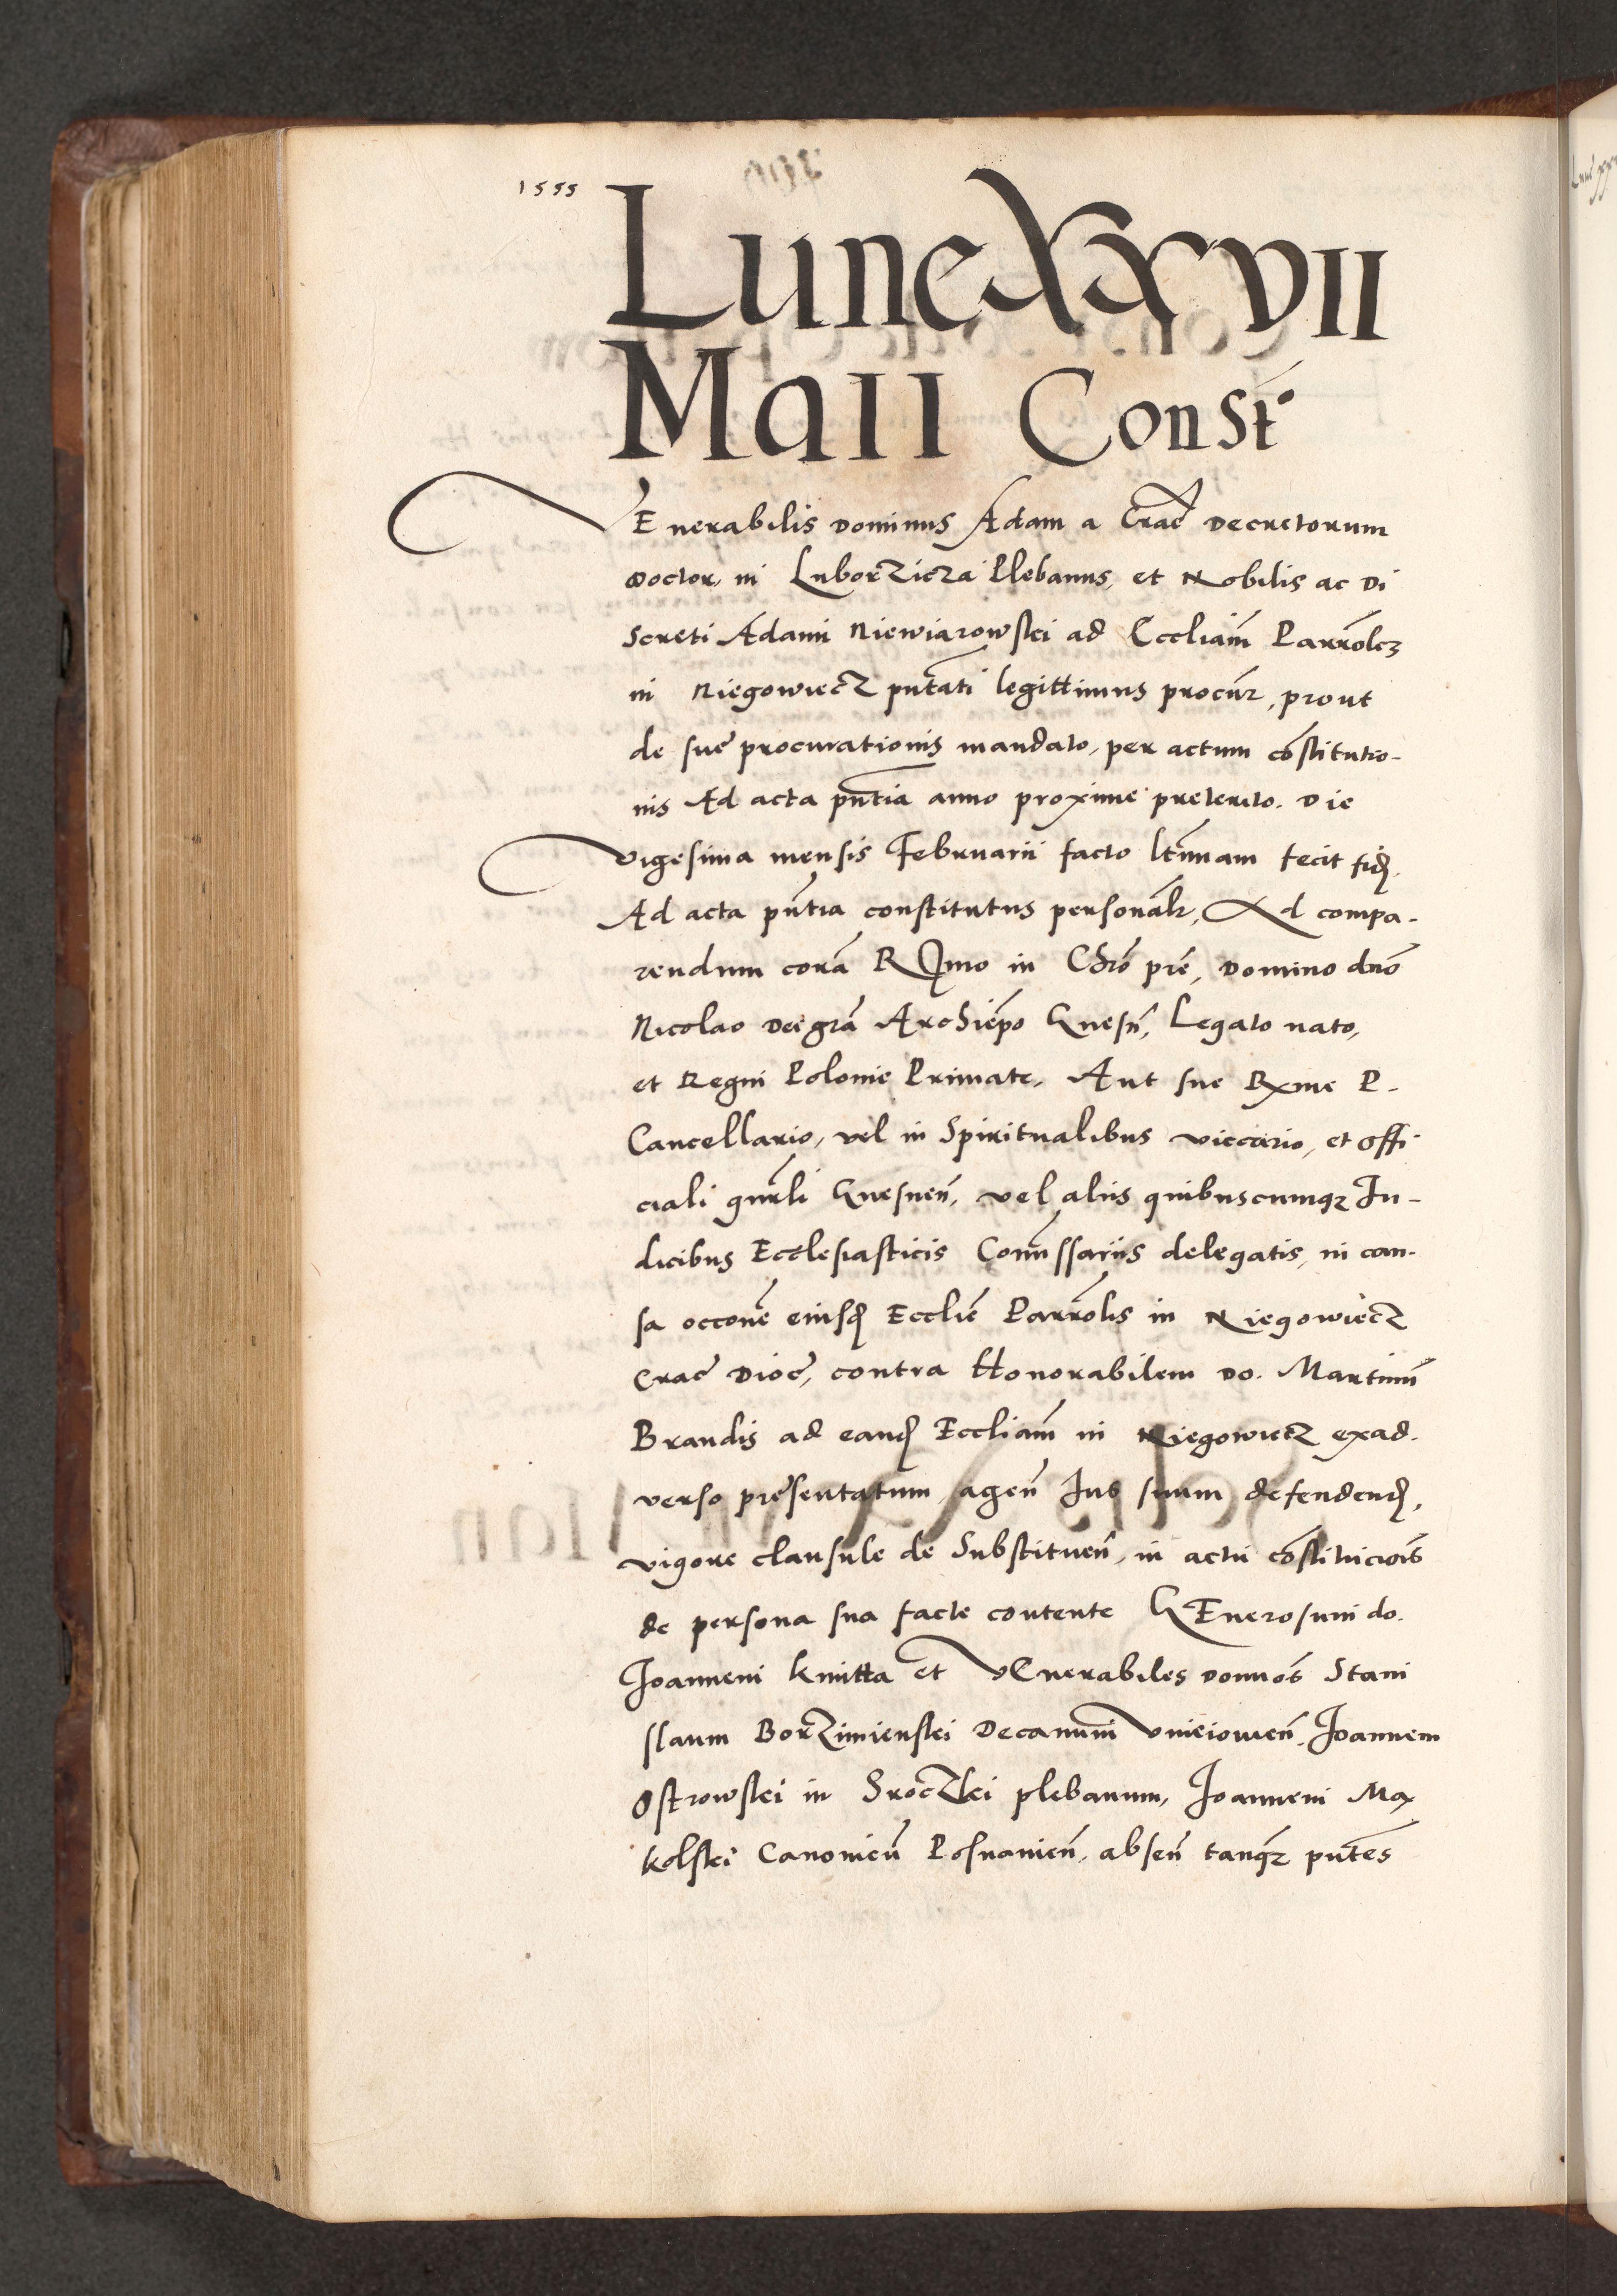 1555
Lune XXVII
Maii Const̄
VEnerabilis Dominus Adam a Crac̄ Decretorum
Doctor, in Luborzicza Plebanus, et Nobilis ac Di
screti Adami Niewiarowskj ad Eccliam̄ Parrolēz
in Niegowiecz pn̄tati legittimus procūr, prout
de sue procurationis mandato, per actum cōstitutio-
nis Ad acta pn̄tia anno proxime preterito. Die
vigesima mensis Februarii facto lt̄imam fecit fid̄.
Ad acta pn̄tia constitutus personalr̄, Ad compa-
rendum corā R̄mo in Chrō prē, Domino dnō
Nicolao Dei grā Archiep̄o Gnesn̄, Legato nato,
et Regni Polonie Primate, Aut sue Rxme P.
Cancellario, vel in Spiritualibus viccario, et offi
ciali gnrl̄i Gnesnen̄, vel aliis quibuscumqz Iu-
dicibus Ecclesiasticis Com̄issariis delegatis, in cau-
sa occonē eiusd̄ Eccliē Parrolīs in Niegowiecz
Crac̄ Dioc̄, contra Honorabilem Do. Martinū
Brandis ad eand̄ Eccliam̄ in Niegowiecz exad-
verso presentatum, agen̄ Ius suum defendend̄,
vigore clausule de Substituen̄, in actu cōstituciois̄
de persona sua facte contente GEnerosum do.
Joannem Kmitta et VEnerabiles Domnos̄ Stani
slaum Borzimienskj Decanum Vnieiouien̄. Joannem
Ostrowskj in Sroczkj plebanum, Joannem Ma
kolskj Canonicū Posnanien̄, absen̄ tanqz pn̄tes